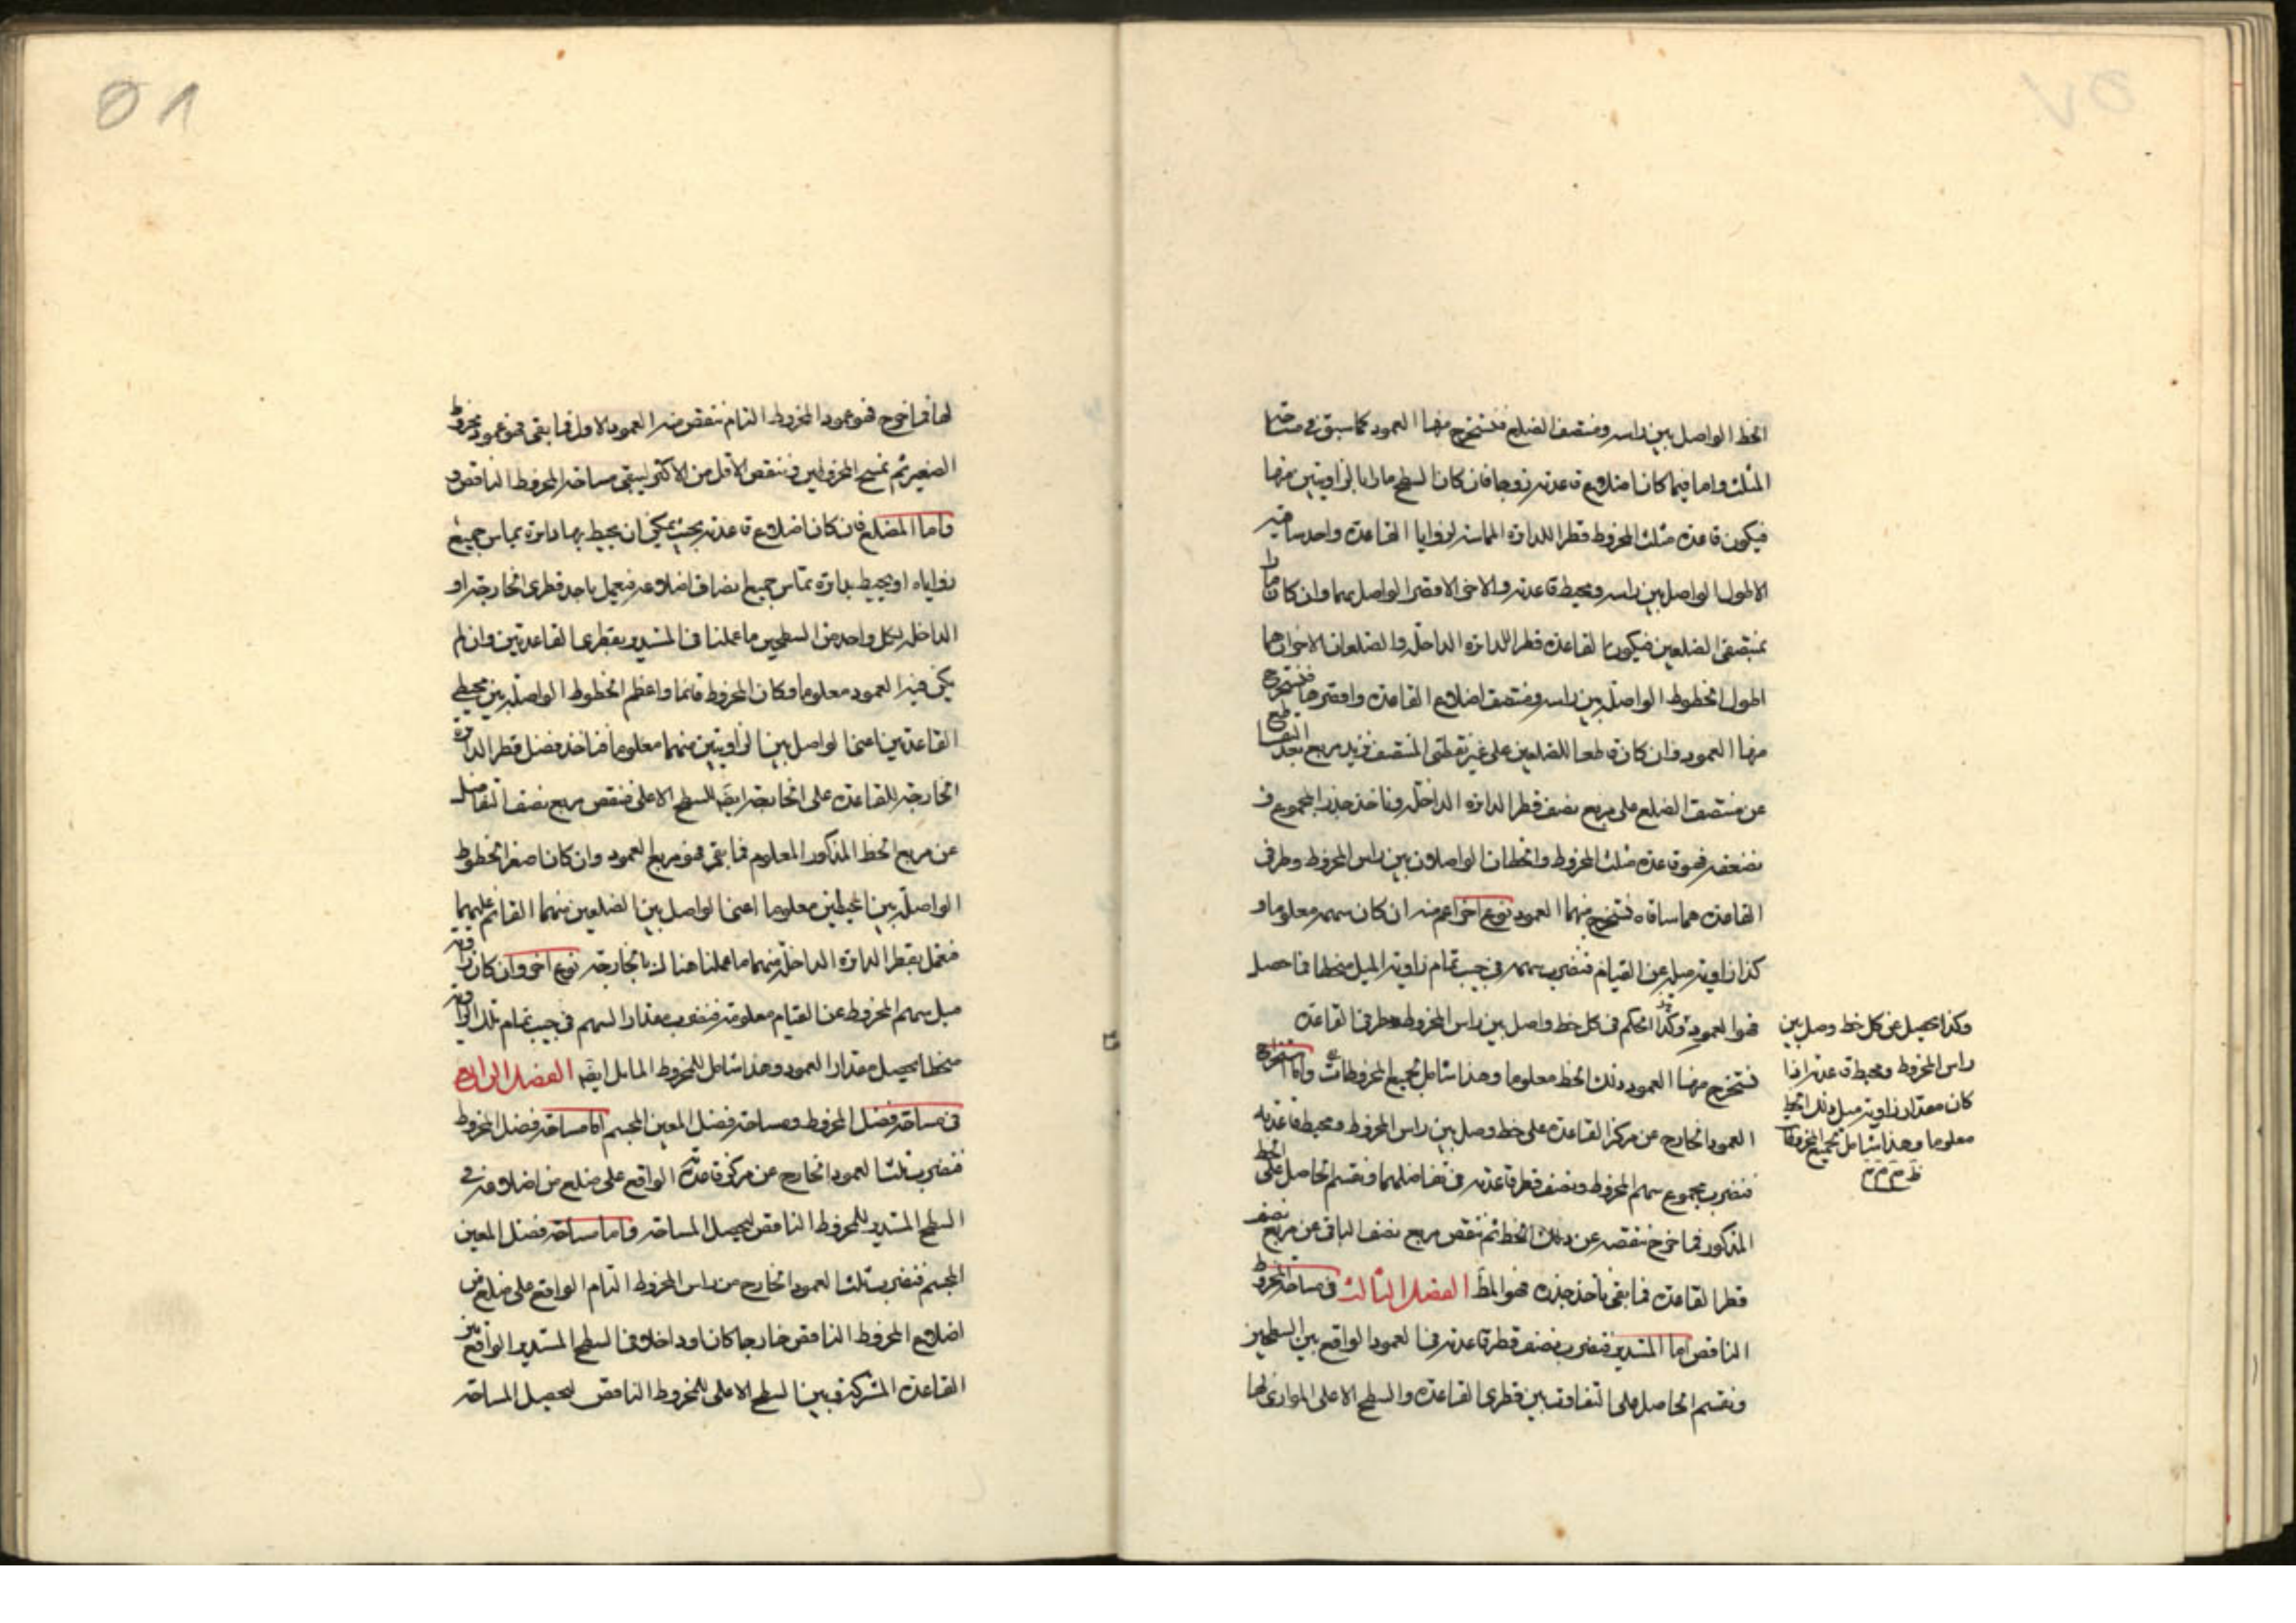 الخط الواصل بين راسه ومنتصف الضلع فنستخرج منها العمود كما سبق في مساحة
المثلث واما فيما كان اضلاع قاعدته زوجا فان كان السطح مارا بالزاويتين منها
فيكون قاعدة مثلث المخروط قطر الدائرة المماسة لزوايا القاعدة واحد ساقيه
الاطول الواصل بين راسه ومحيط قاعدته والاخر الاقصر الواصل بينهما وان كان مارا
بمنتصفي الضلعين فيكون القاعدة قطر الدائرة الداخلة والضلعان الاخران هما
اطول الخطوط الواصلة بين راسه ومنتصف اضلاع القاعدة واقصرها فنستخرج
منها العمود وان كان قاطعا للضلعين على غير نقطتي المنتصف فنزيد مربع بعد التقاطع
عن منتصف الضلع على مربع نصف قطر الدائرة الداخلة وناخذ جذر المجموع و
نضعفه فهو قاعدة مثلث المخروط والخطان الواصلان بين راس المخروط وطرفي
القاعدة هما ساقاه فنستخرج منهما العمود نوع اخر اعم منه ان كان سهمه معلوما و
كذا زاوية ميله عن القيام فنضرب سهمه في جيب تمام زاوية الميل منحطا فما حصل
فهو العمود وكذا الحكم في كل خط واصل بين راس المخروط وطرفي القاعدة
فنستخرج منها العمود وذلك الخط معلوما وهذا شامل لجميع المخروطات واما استخراج
العمود الخارج عن مركز القاعدة على خط وصل بين راس المخروط ومحيط قاعدته
فنضرب مجموع سهم المخروط ونصف قطر قاعدته في تفاضلهما ونقسم الحاصل على الخط
المذكور فما خرج ننقصه عن ذلك الخط ثم ننقص مربع نصف الباقي عن مربع نصف
قطر القاعدة فما بقي ناخذ جذره فهو المط الفصل الثالث في مساحة المخروط
الناقص اما المستدير فنضرب نصف قطر قاعدته في العمود الواقع بين السطحين
ونقسم الحاصل على التفاوت بين قطري القاعدة والسطح الاعلى الموازي لها
وكذا يحصل عن كل خط وصل بين
راس المخروط ومحيط قاعدته اذا
كان مقدار زاوية ميل ذلك الخط
معلوما وهذا شامل لجميع المخروطات
٥٨
لها فما خرج فهو عمود المخروط التام ننقص منه العمود الاول فما بقي فهو عمود مخروط
الصغير ثم نمسح المخروطين وننقص الاقل من الاكثر ليبقى مساحة المخروط الناقص
واما المضلع فان كان اضلاع قاعدته بحيث يمكن ان يحيط بها دائرة يماس جميع
زواياه او يحيط بدائرة تماس جميع انصاف اضلاعه فنعمل باحد قطري الخارجة او
الداخلة لكل واحد من السطحين ما عملنا في المستدير بقطري القاعدتين وان لم
يكن فيه العمود معلوما وكان المخروط قائما واعظم الخطوط الواصلة بين محيطي
القاعدتين اعني الواصل بين الزاويتين منهما معلوما فناخذ فضل قطر الدائرة
الخارجة للقاعدة على الخارجة ايضا للسطح الاعلى فننقص مربع نصف التفاضل
عن مربع الخط المذكور المعلوم فما بقي فهو مربع العمود وان كان اصغر الخطوط
الواصلة بين المحيطين معلوما اعني الواصل بين الضلعين منهما القائم عليهما
فنعمل بقطر الدائرة الداخلة منهما ما عملنا هنالك بالخارجة نوع اخر وان كان زاوية
ميل سهم المخروط عن القيام معلومة فنضرب مقدار السهم في جيب تمام تلك الزاوية
منحطا يحصل مقدار العمود وهذا شامل للمخروط المائل ايضا الفصل الرابع
في مساحة فضل المخروط ومساحة فضل المعين المجسم اما مساحة فضل المخروط
فنضرب ثلث العمود الخارج عن مركز قاعدته الواقع على ضلع من اضلاعه في
السطح المستدير للمخروط الناقص ليحصل المساحة واما مساحة فضل المعين
المجسم فنضرب ثلث العمود الخارج من راس المخروط التام الواقع على ضلع من
اضلاع المخروط الناقص خارجا كان او داخلا في السطح المستدير الواقع بين
القاعدة المشتركة وبين السطح الاعلى للمخروط الناقص ليحصل المساحة